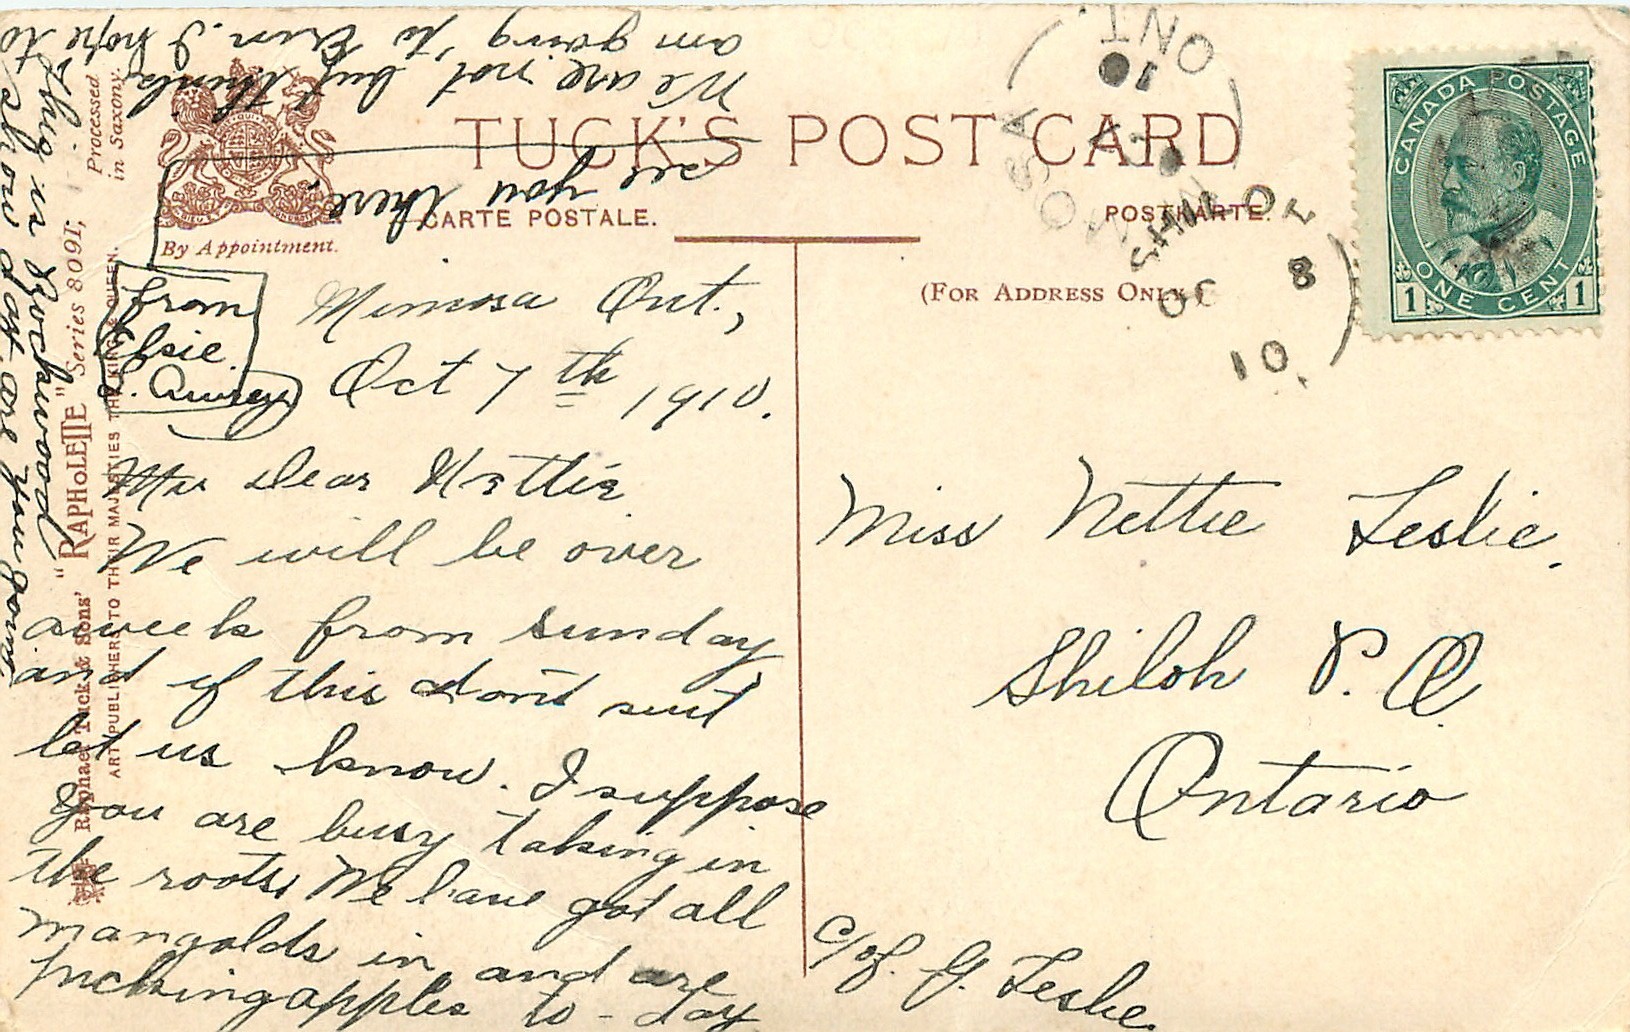 TUCK'S POST CARD
CARTE POSTALE.
POSTKARTE.
(FOR ADDRESS ONLY.)
By Appointment.
Processed
in Saxony.
Raphael Tuck & Sons' "RAPHOLETTE" Series 8091;
ART PUBLISHERS TO THEIR MAJESTIES THE KING & QUEEN.
CANADA POSTAGE
ONE CENT
1 1
ONT
OC 8
10
from
Elsie
Mimosa Ont.,
Oct 7th 1910.
My Dear Nettie
We will be over
a week from Sunday
and if this don't suit
let us know. I suppose
you are busy taking in
the roots. We have got all
mangolds in and are
picking apples to-day
This is Rockwood
show day are you going
We are not but think
am going to Erin. I hope to
see you there.
Miss Nettie Leslie.
Shiloh P.O.
Ontario
c/of. G. Leslie